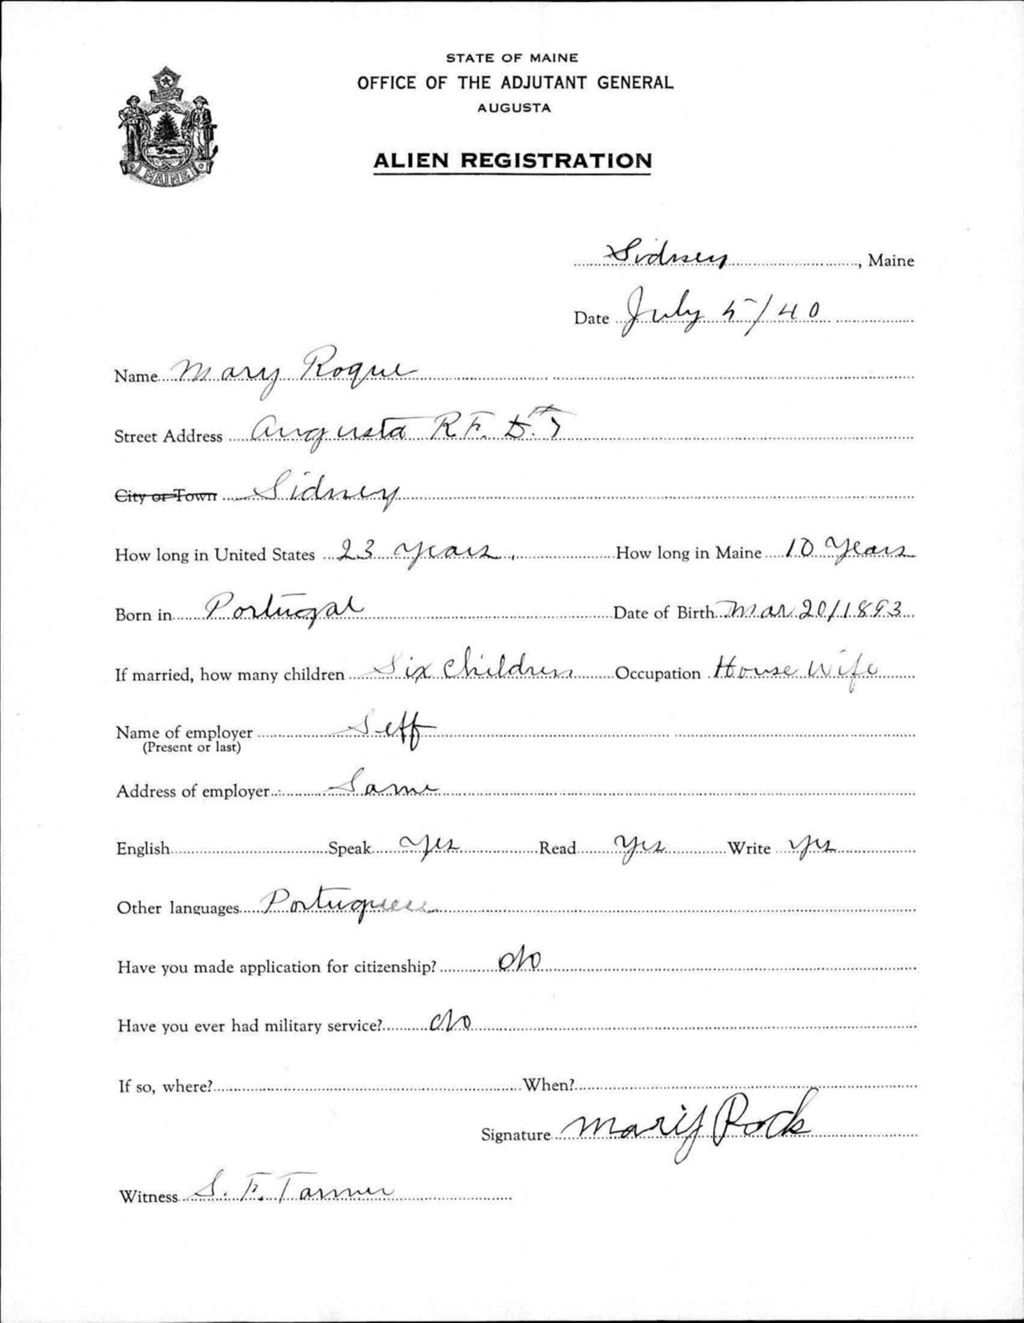 STATE OF MAINE
OFFICE OF THE ADJUTANT GENERAL
AUGUSTA
ALIEN REGISTRATION
MAINE
Sidney, Maine
Date July 5/40
Name Mary Roque
Street Address Augusta R.F.D. #7
City or Town Sidney
How long in United States 23 Years. How long in Maine 10 Years
Born in Portugal Date of Birth Mar 20/1893
If married, how many children Six Children Occupation House Wife
Name of employer Seff
(Present or last)
Address of employer Same
English Speak Yes Read Yes Write Yes
Other languages Portuguese
Have you made application for citizenship? No
Have you ever had military service? No
If so, where? When?
Signature Mary Rock
Witness S. F. Tanner